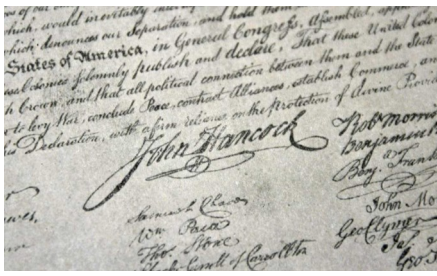 which, would inevitably
which denounces our Separation, and hold them
States of America, in General Congress, Assembled, app
Colonies solemnly publish and declare, That these United Colo
Crown, and that all political connection between them and the State
to levy War, conclude Peace, contract Alliances, establish Commerce, an
Declaration, with a firm reliance on the Protection of divine Provid
John Hancock
Robt Morris
Benjamin
Benja Frank
John Mo
Geo Clymer
Ja
Geo
Samuel Chase
Wm Paca
Thos Stone
Charles Carroll of Carrollton